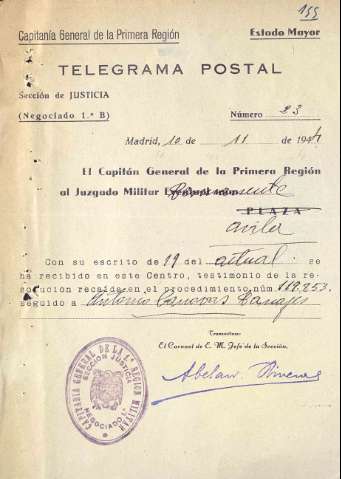 155
Capitanía General de la Primera Región
Estado Mayor
TELEGRAMA POSTAL
Sección de JUSTICIA
(Negociado 1.º B)
Número 23
Madrid, 10 de 11 de 1944
El Capitán General de la Primera Región
al Juzgado Militar Permanente
PLAZA
Avila
Con su escrito de 19 del actual se
ha recibido en este Centro, testimonio de la re-
solución recaída en el procedimiento núm. 119.853
seguido a Antonio Canovas
Transcríbase:
El Coronel de E. M. Jefe de la Sección,
CAPITANIA GENERAL DE LA 1ª REGION MILITAR
SECCION JUSTICIA
NEGOCIADO 1º